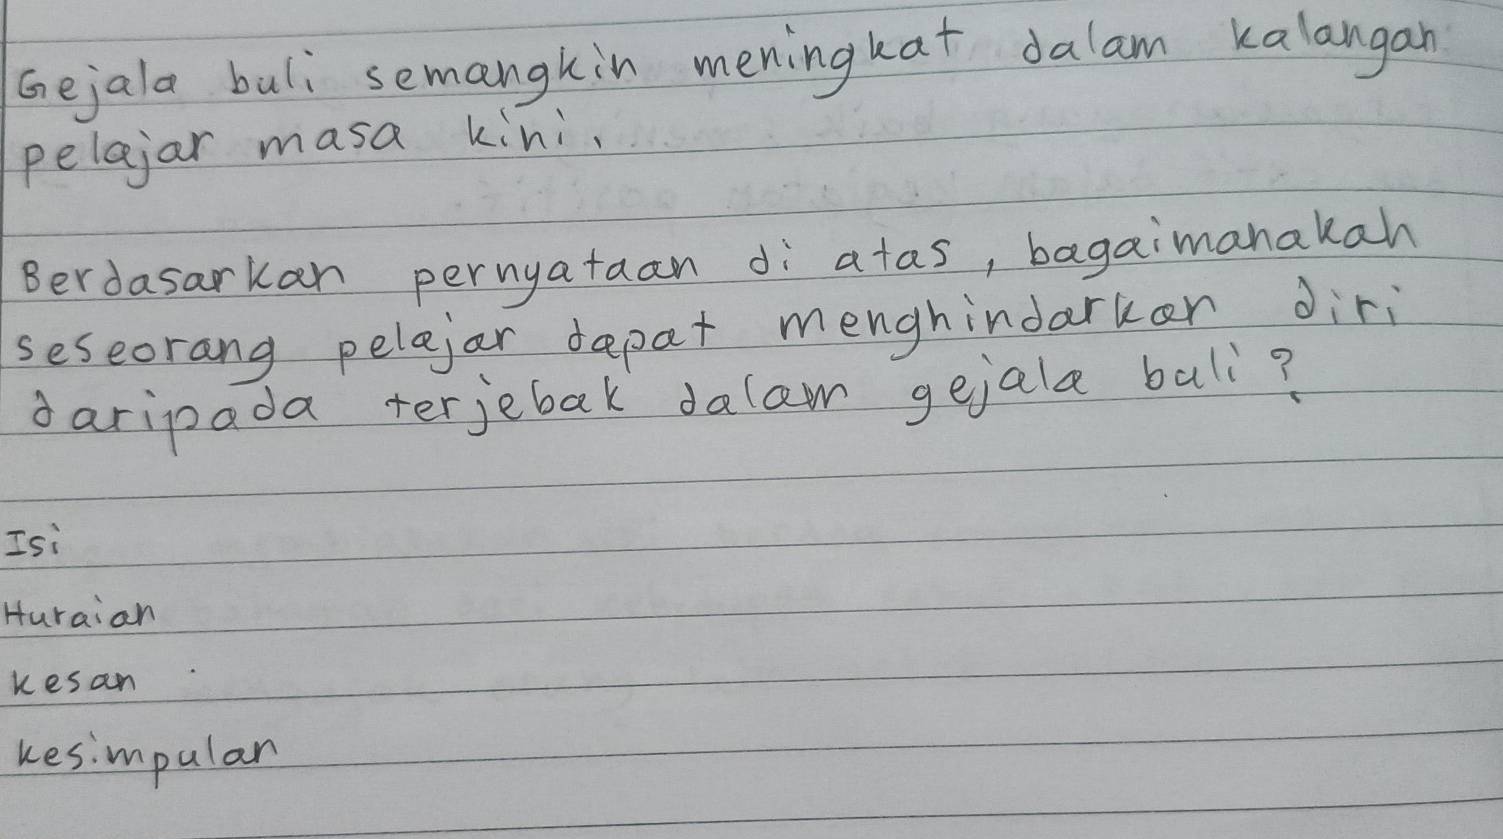 Gejala buli semangkin meningkat dalam kalangan
pelajar masa kini.
Berdasarkan pernyataan di atas, bagaimanakah
seseorang pelajar dapat menghindarkan diri
daripada terjebak dalam gejala buli?
Isi
Huraian
Kesan
Kesimpulan